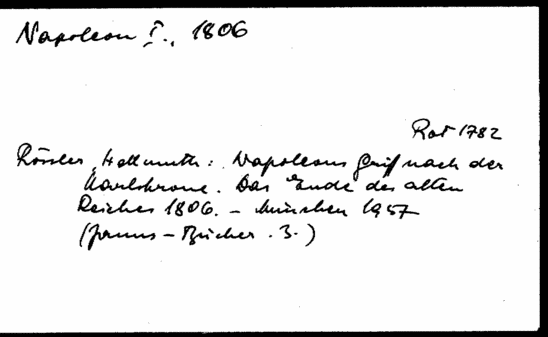 Napoleon I., 1806
Rot 1782
Rössler, Hellmuth: Napoleons Griff nach der
Karlskrone. Das Ende des alten
Reiches 1806. – München 1957
(Janus-Bücher. 3.)